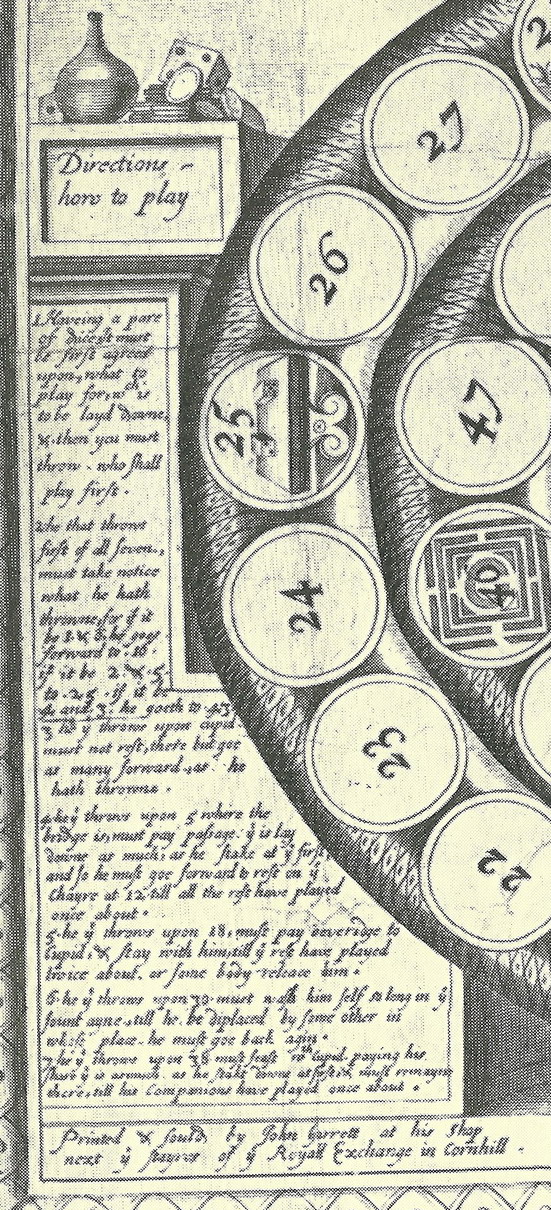 Directions -
how to play
1. Haveing a pare
of dice, it must
be first agreed
upon, what to
play for, wch is
to be layd downe,
&. then you must
throw. who shall
play first.
2 he that throws
first of all seven,
must take notice
what he hath
throwne, for if it
be 1. & 6. he goes
forward to
if it be 2. & 5
to 25. if it be
4 and 3. he goeth to 43
3 he ÿ throws upon cupid
must not rest, there but goe
as many forward, as he
hath throwne.
4 he ÿ throws upon 5 where the
bridge is, must pay passage. ÿ is lay
downe as much, as he stake at ÿ first,
and so he must goe forward to rest on ÿ
Chayre at 12 till all the rest have played
once about.
5. he ÿ throws upon 18, must pay beveridge to
Cupid, & stay with him, till ÿ rest have played
twice about, or some body release him.
6. he ÿ throws upon 30 must wash him self so long in ÿ
fountayne, till he be displaced by some other in
whose place he must goe back again.
7 he ÿ throws upon 38 must feast wth Cupid. paying his
share ÿ is asmuch as he stake downe at first & must remayne
there, till his Companions have played once about.
Printed & sould by John Garrett at his Shop
next ÿ stayres of ÿ Royall Exchange in Cornhill.
27
26
25
24
23
22
47
40